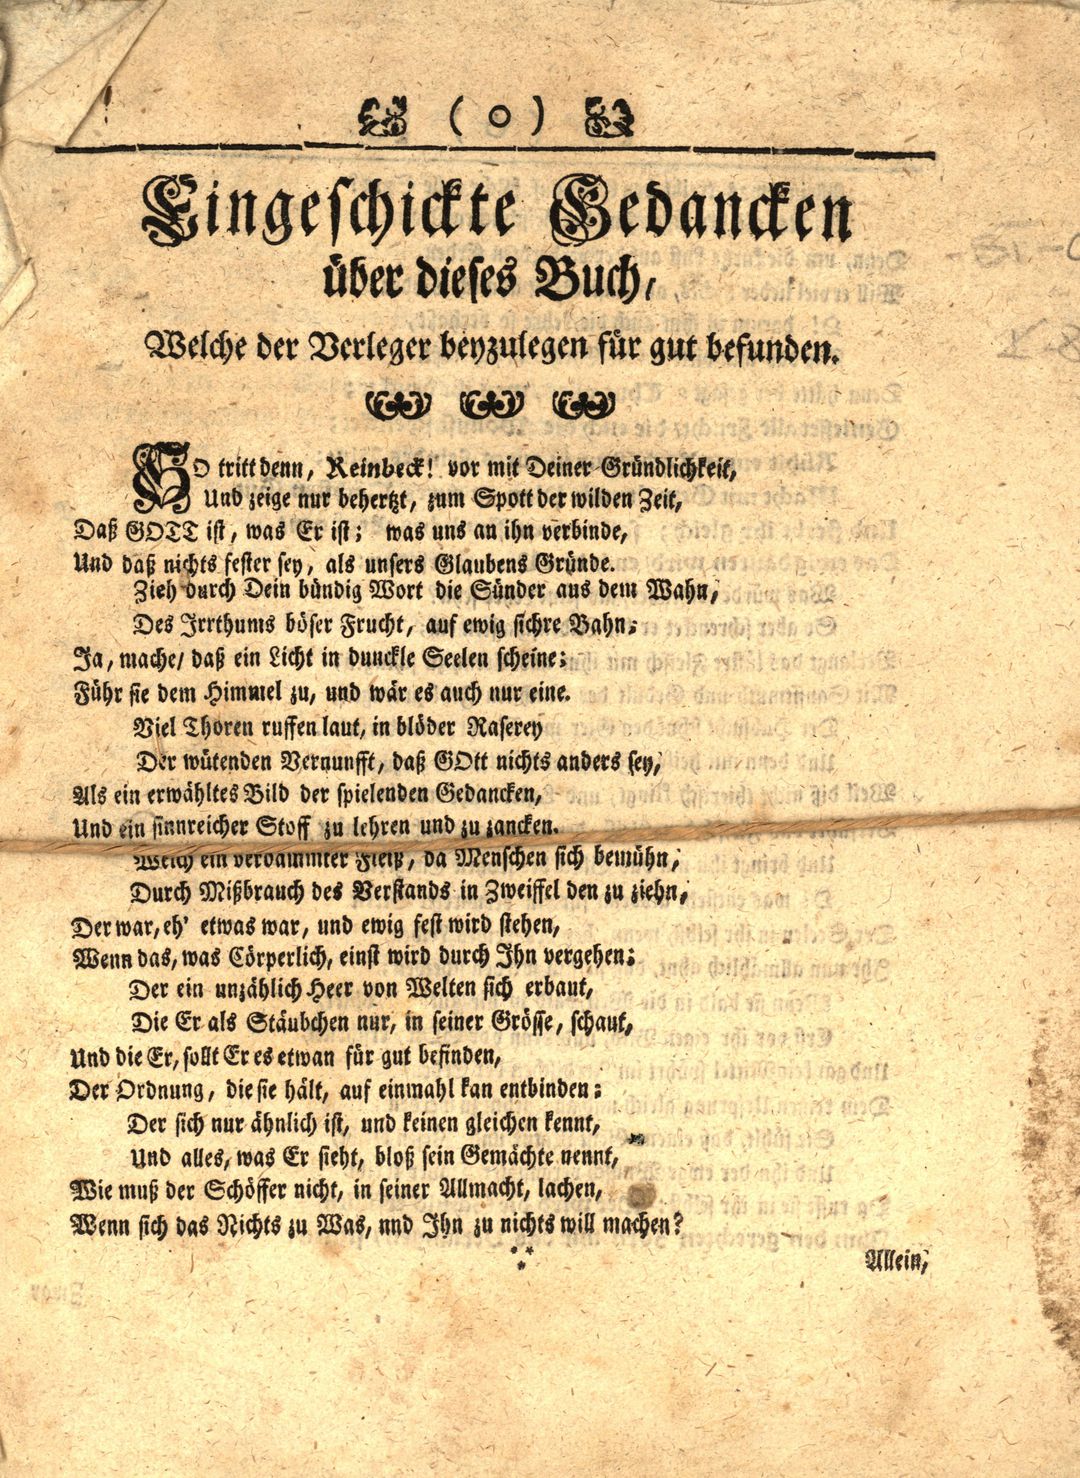 ( o )
Eingeschickte Gedancken
über dieses Buch,
Welche der Verleger beyzulegen für gut befunden.
SO tritt denn, Reinbeck! vor mit Deiner Gründlichkeit,
Und zeige nur behertzt, zum Spott der wilden Zeit,
Daß GOTT ist, was Er ist; was uns an ihn verbinde,
Und daß nichts fester sey, als unsers Glaubens Gründe.
Zieh durch Dein bündig Wort die Sünder aus dem Wahn,
Des Irrthums böser Frucht, auf ewig sichre Bahn;
Ja, mache/ daß ein Licht in dunckle Seelen scheine;
Führ sie dem Himmel zu, und wär es auch nur eine.
Viel Thoren ruffen laut, in blöder Raserey
Der wütenden Vernunfft, daß GOtt nichts anders sey,
Als ein erwähltes Bild der spielenden Gedancken,
Und ein sinnreicher Stoff zu lehren und zu zancken.
Welch ein verdammter Fleiß, da Menschen sich bemühn,
Durch Mißbrauch des Verstands in Zweiffel den zu ziehn,
Der war, eh' etwas war, und ewig fest wird stehen,
Wenn das, was Cörperlich, einst wird durch Ihn vergehen;
Der ein unzählich Heer von Welten sich erbaut,
Die Er als Stäubchen nur, in seiner Grösse, schaut,
Und die Er, sollt Er es etwan für gut befinden,
Der Ordnung, die sie hält, auf einmahl kan entbinden;
Der sich nur ähnlich ist, und keinen gleichen kennt,
Und alles, was Er sieht, bloß sein Gemächte nennt,
Wie muß der Schöffer nicht, in seiner Allmacht, lachen,
Wenn sich das Nichts zu Was, und Ihn zu nichts will machen?
Allein,